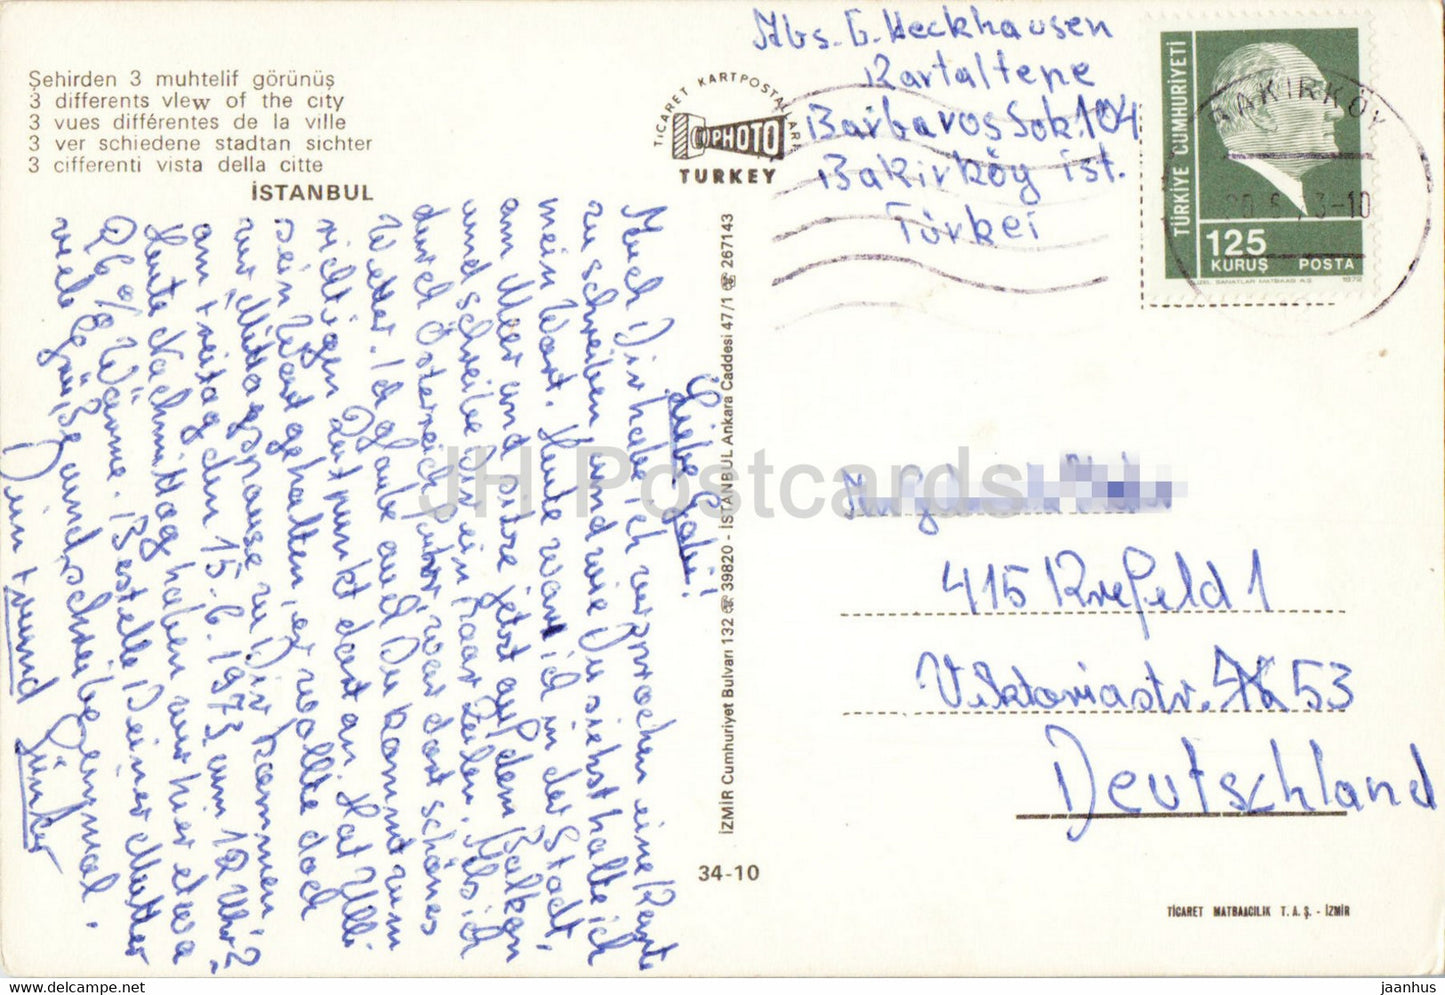 Şehirden 3 muhtelif görünüş
3 differents vlew of the city
3 vues différentes de la ville
3 ver schiedene stadtan sichter
3 cifferenti vista della citte
İSTANBUL
TİCARET KARTPOSTALLARI
PHOTO
TURKEY
Abs. G. Heckhausen
Kartaltepe
Barbaros Sok. 104
Bakirköy ist.
Türkei
TÜRKİYE CUMHURİYETİ
125
KURUŞ POSTA
GÜZEL SANATLAR MATBAASI A.Ş. 1972
BAKIRKÖY
Liebe Gabi!
Auch Dir habe ich versprochen eine Karte
zu schreiben und wie Du siehst halte ich
mein Wort. Heute war ich in der Stadt,
am Meer und sitze jetzt auf dem Balkon
und schreibe Dir ein paar Zeilen. Als ich
durch Österreich fuhr, war dort schönes
Wetter. Ich glaube auch Du kommst zum
richtigen Zeitpunkt dort an. Hat Ulli
sein Wort gehalten, er wollte doch
zur "Mittagspause zu Dir kommen?
am Freitag den 15.6.1973 um 12 Uhr"?
Heute Nachmittag haben wir hier etwa
26 % Wärme. Bestelle Deiner Mutter
viele Grüße und schreibe einmal.
Dein Freund Günter
İZMİR Cumhuriyet Bulvarı 132 ☎ 39820 - İSTANBUL Ankara Caddesi 47/1 ☎ 267143
34-10
415 Krefeld 1
Viktoriastr. 53
Deutschland
TİCARET MATBAACILIK T. A. Ş. - İZMİR
JH Postcards
hippostcard.com
jaanhus